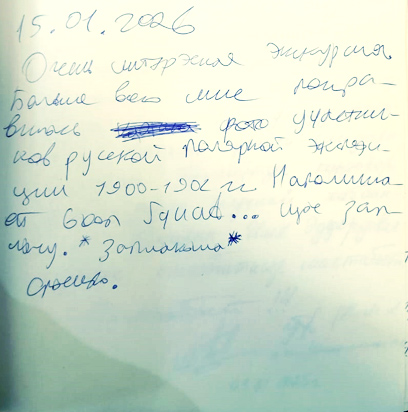 15.01.2026
Очень интэрэсная экскурсия.
Больше всего мне понра-
вилось фото участни-
ков русской полярной экспеди-
ции 1900-1902 гг. Напомина-
ет ... щас зап-
лачу. *Заплакала*
Спасибо.